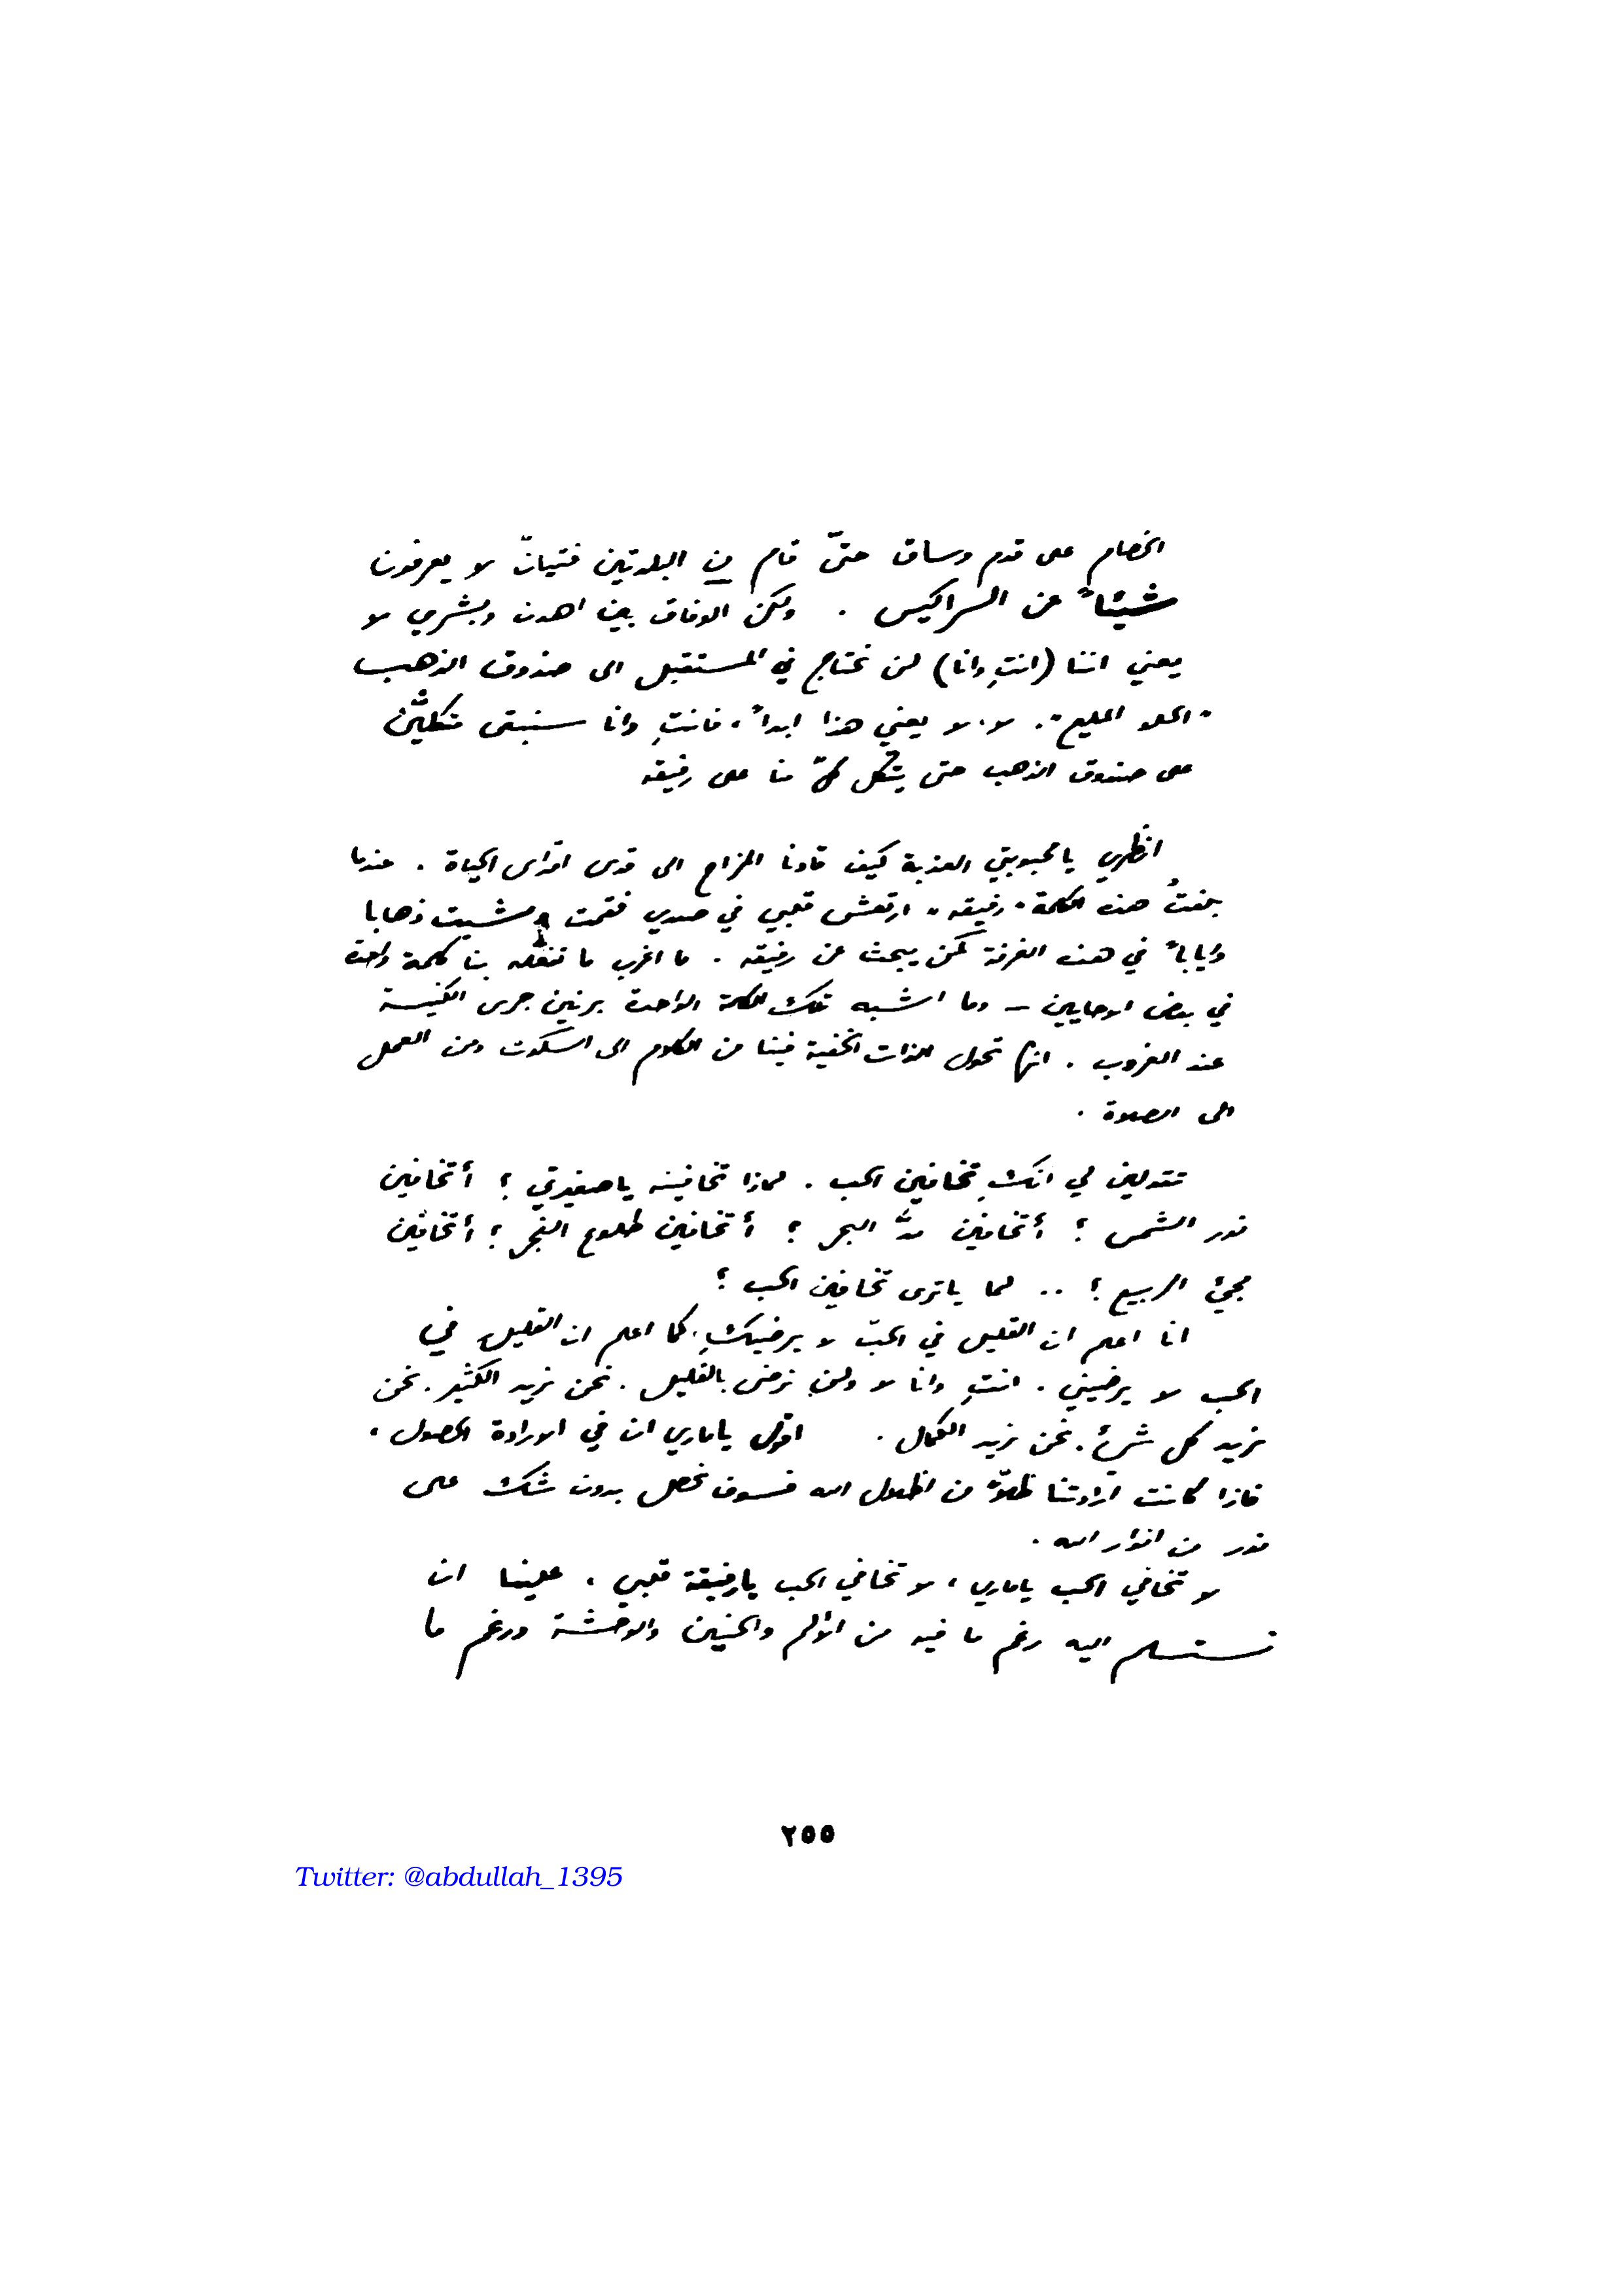 الخصام على قدم وساق حتىّ قام من البلدتين فتيانٌ لا يعرفون
شيئاً عن السراكيس . ولكن الوفاق بين اهدن وبشري لا
يعني اننا (انتِ وانا) لن نحتاج في المستقبل الى صندوق الذهب
"الحلو المليح". لا. لا يعني هذا ابداً، فانتِ وانا سنبقى متكليّن
على صندوق الذهب حتى يتّكل كلّ منا على رفيقه
انظري يا محبوبتي العذبة كيف قادنا المزاح الى قدس اقداس الحياة . عندما
بلغتُ هذه الكلمة "رفيقه" ارتعش قلبي في صدري فقمت ومشيت ذهابا
وايابا ً في هذه الغرفة كمن يبحث عن رفيقه . ما اغرب ما تفعله بنا كلمة واحدة
في بعض الاحايين – وما اشبه تلك الكلمة الواحدة برنين جرس الكنيسة
عند الغروب . انها تحول الذات الخفية فينا من الكلام الى السكوت ومن العمل
الى الصلاة .
تقولين لي انكِ تخافين الحب . لماذا تخافينه يا صغيرتي ؟ أتخافين
نور الشمس ؟ أتخافين مدَّ البحر ؟ أتخافين طلوع الفجر ؟ أتخافين
مجيْ الربيع ؟ .. لما يا ترى تخافين الحب ؟
انا اعلم ان القليل في الحبّ لا يرضيكِ. كما اعلم ان القليل في
الحب لا يرضيني . انتِ وانا لا ولن نرضى بالقليل . نحن نريد الكثير . نحن
نريد كل شيْ . نحن نريد الكمال . اقول يا ماري ان في الارادة الحصول ،
فاذا كانت ارادتنا ظلّاً من اظلال الله فسوف نحصل بدون شك على
نور من انوار الله .
لا تخافي الحب يا ماري ، لا تخافي الحب يا رفيقة قلبي ، علينا ان
نستسلم اليه رغم ما فيه من الألم والحنين والوحشة ورغم ما
٢٥٥
Twitter: @abdullah_1395